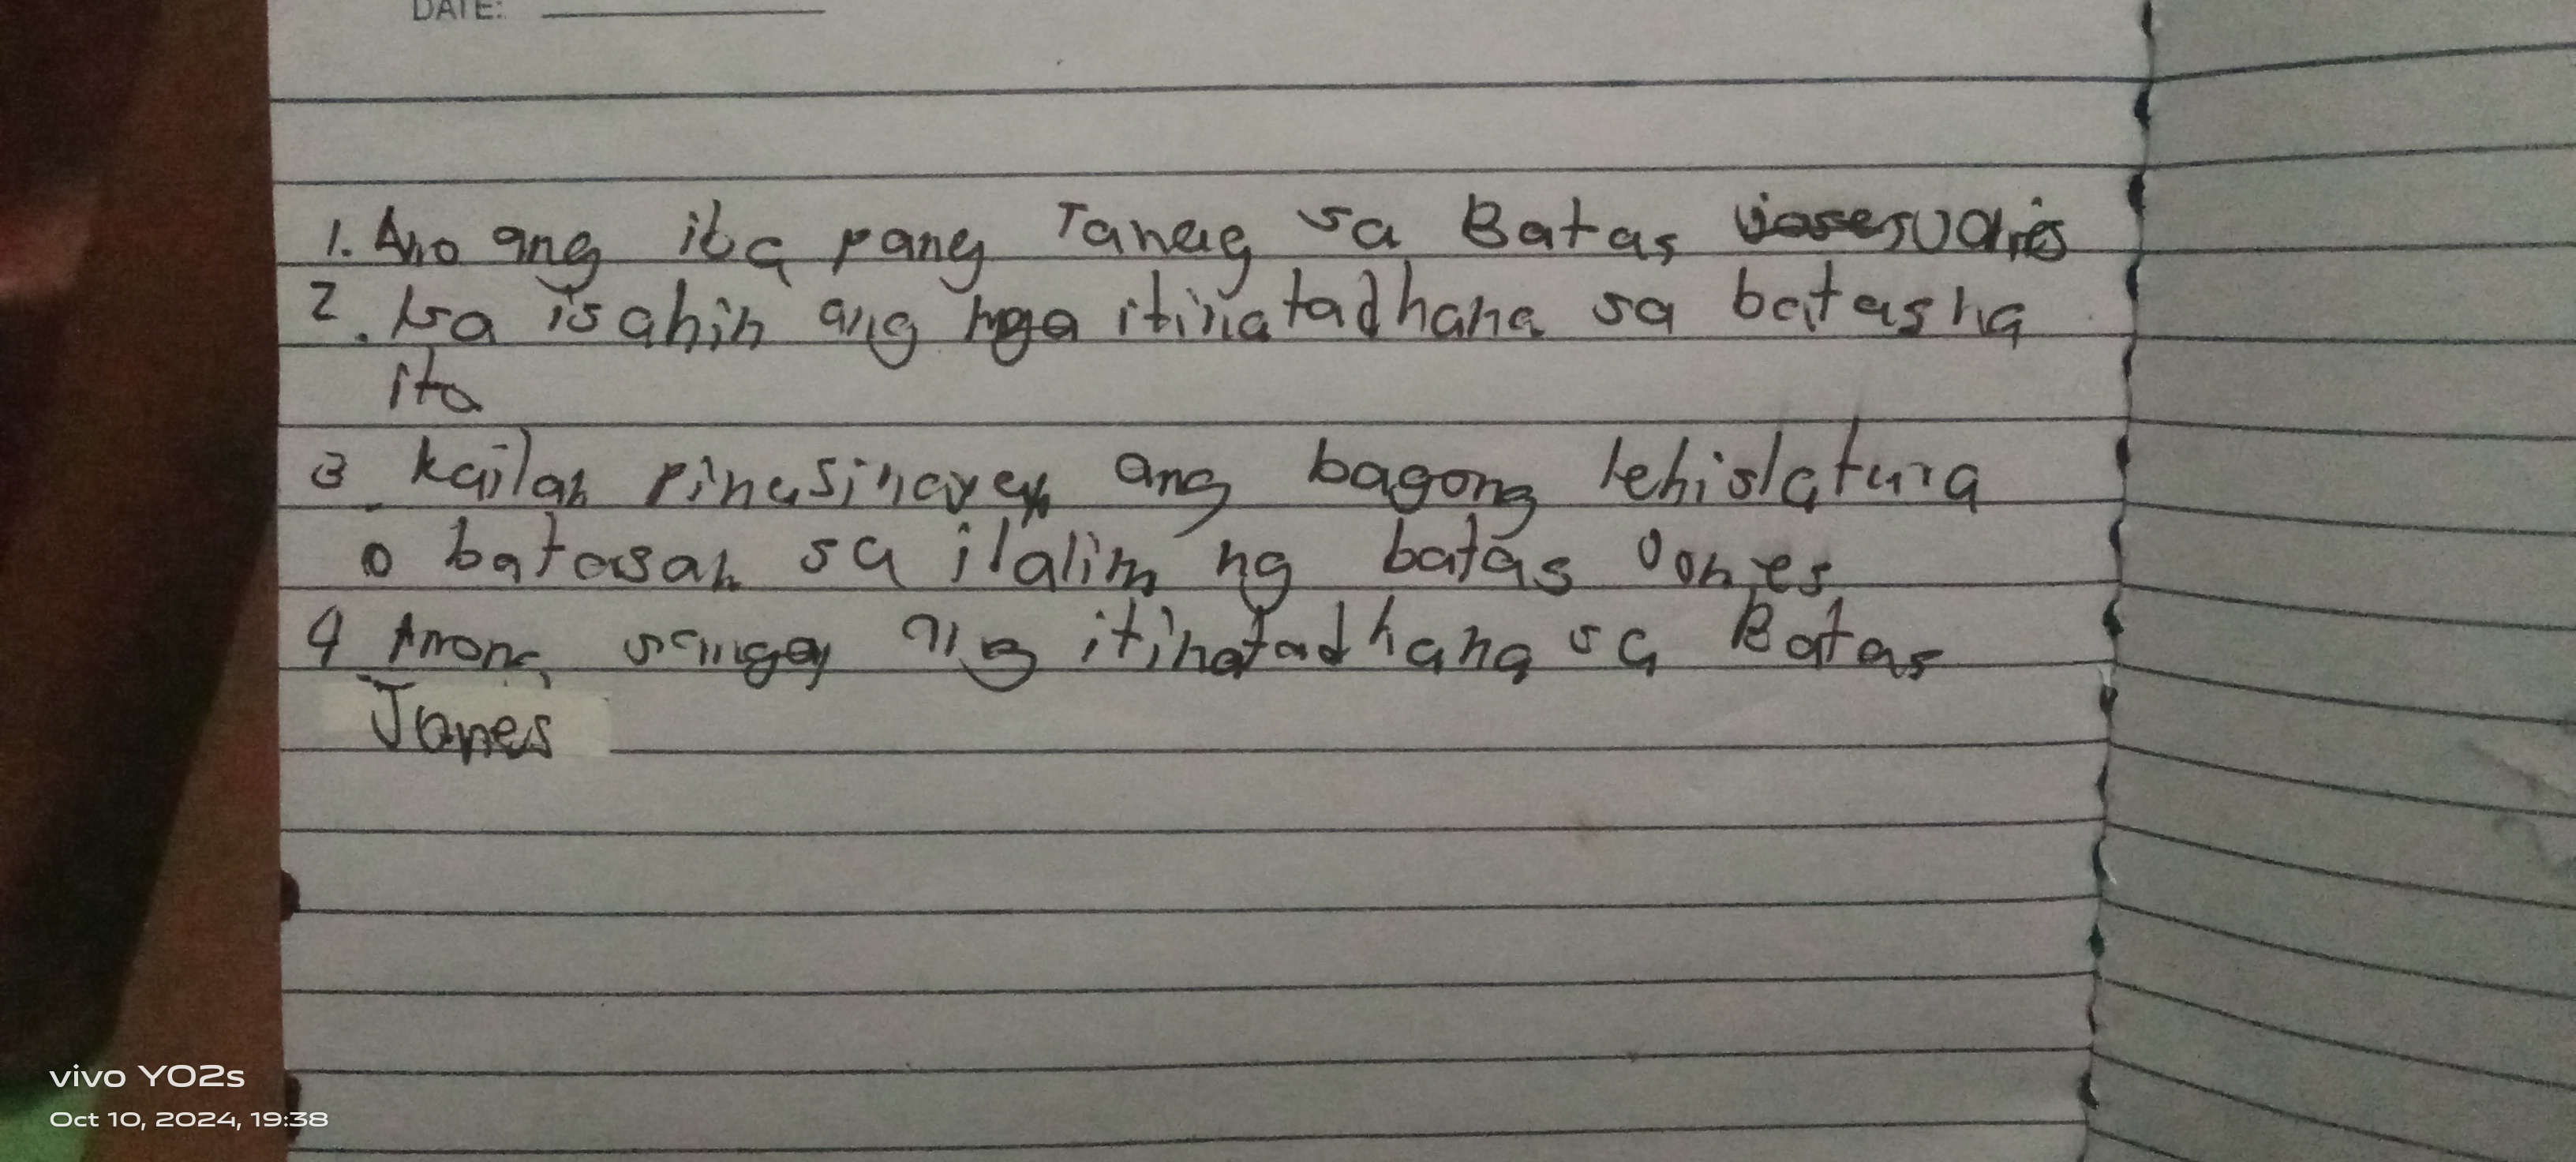 DATE:
1. Ano ang iba pang Tawag sa Batas
2. Isa isahin ang mga itinatadhana sa batas na
ito
3. kailan pinasinayan ang bagong lehislatura
o batasan sa ilalim ng batas Jones
4 Anong sangay ang itinatadhana sa Batas
Jones
vivo Y02s
Oct 10, 2024, 19:38